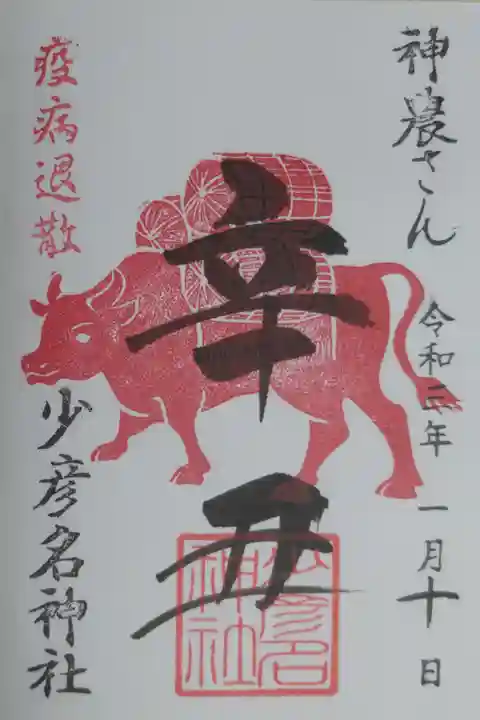 神農さん
令和三年 一月十日
辛丑
疫病退散
少彦名神社
少彦名
神社